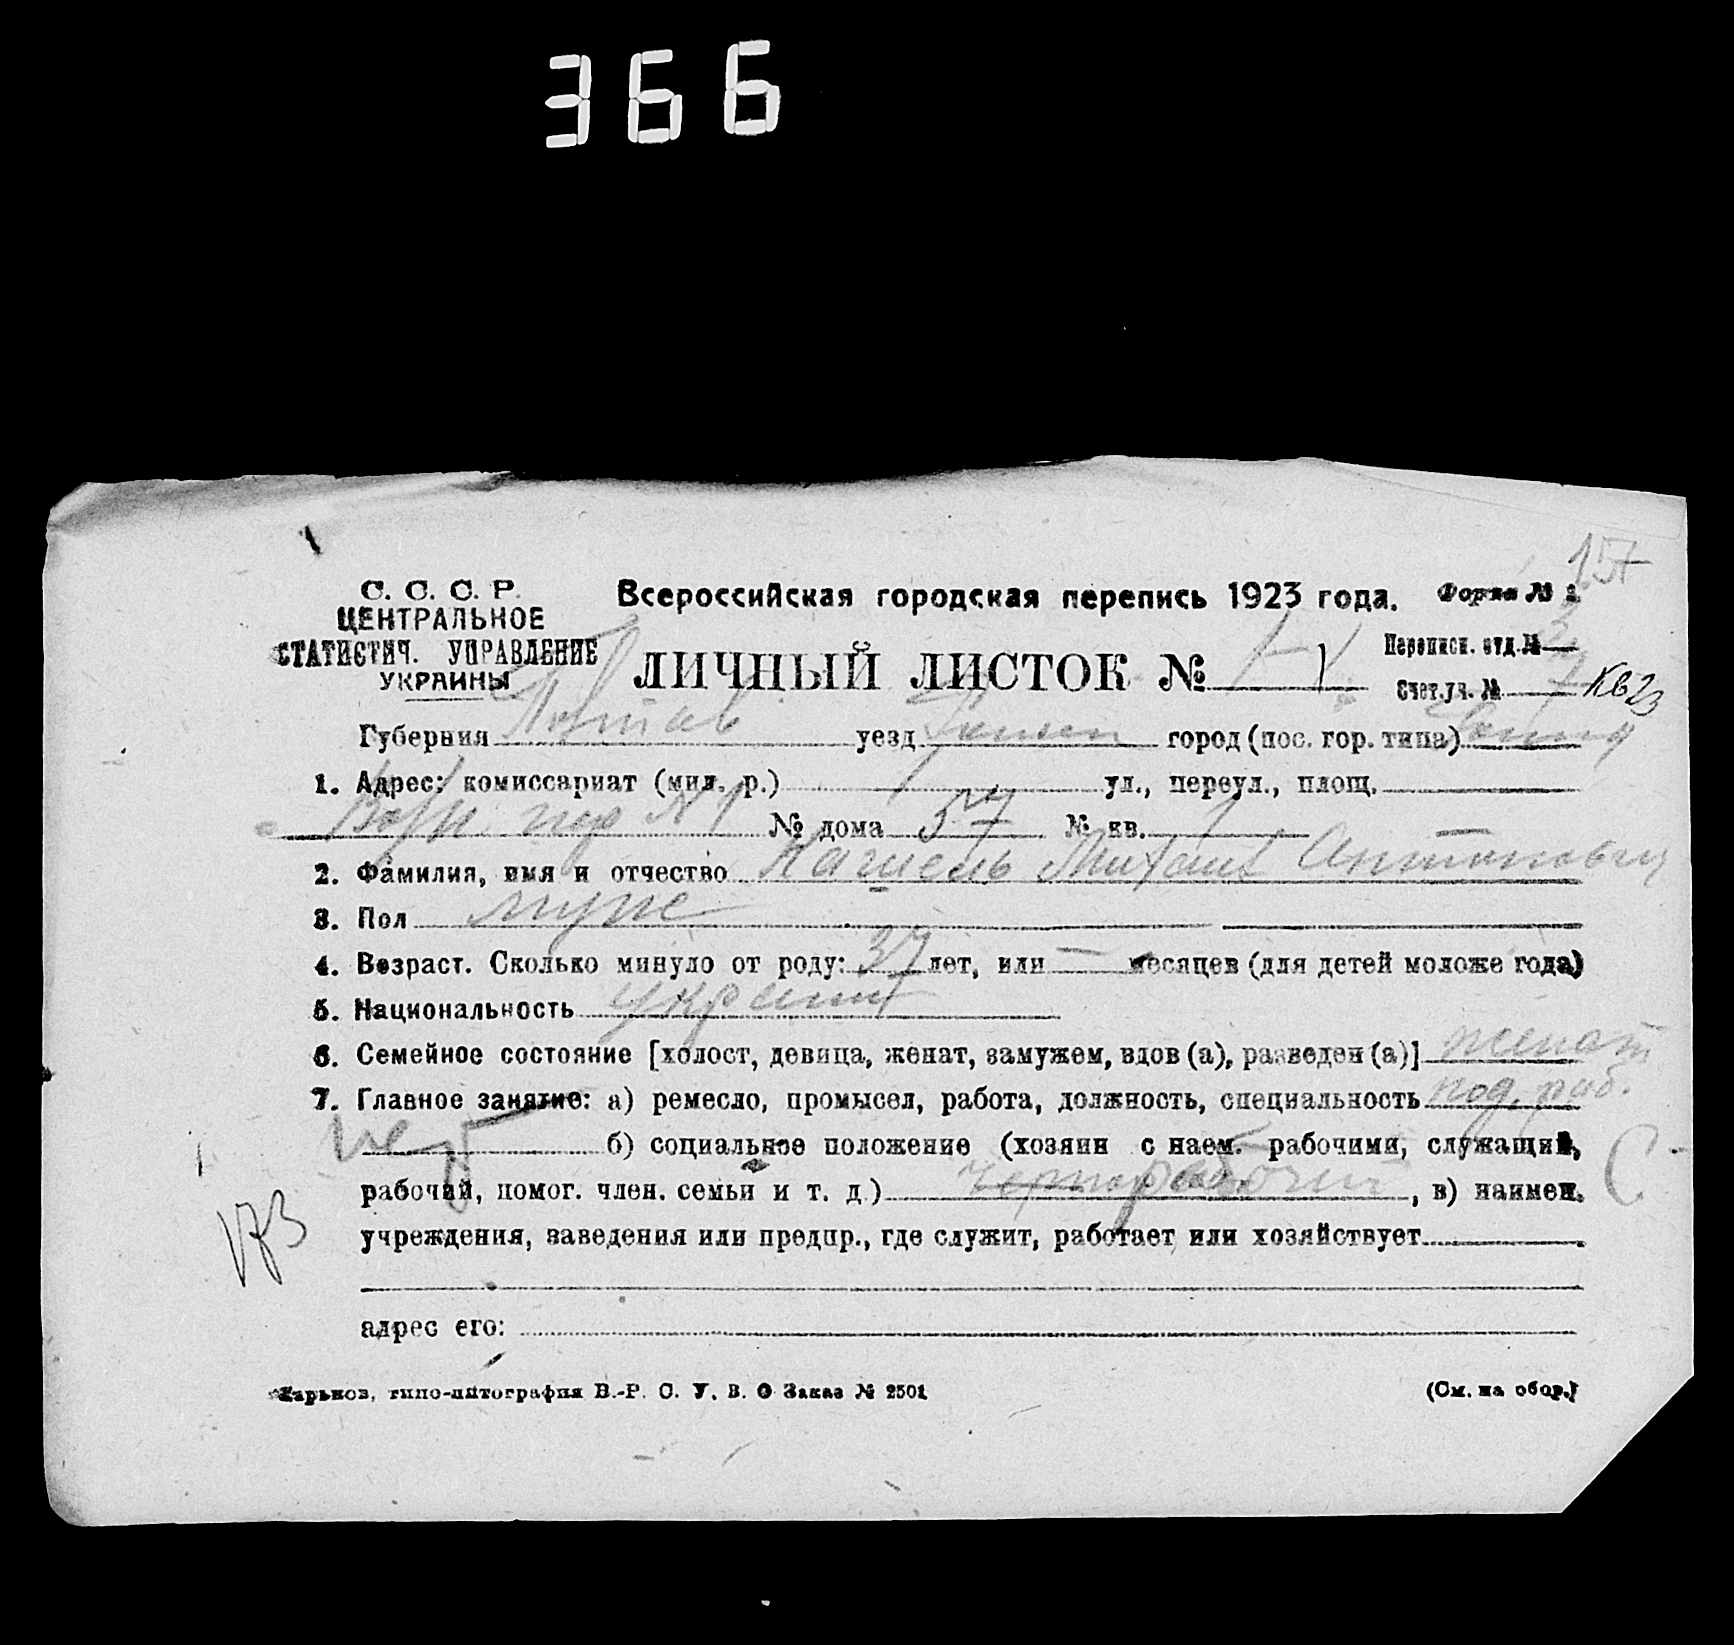 366
157
С. С. С. Р.
ЦЕНТРАЛЬНОЕ
СТАТИСТИЧ. УПРАВЛЕНИЕ
УКРАИНЫ
Всероссийская городская перепись 1923 года. Форма № 1.
ЛИЧНЫЙ ЛИСТОК №
Переписн. отд. №
Счет. уч. №
Губерния Полтав уезд город (пос. гор. типа)
1. Адрес: комиссариат (мил. р.) ул., переул., площ.
№ дома 57 № кв. 1
2. Фамилия, имя и отчество Михаил Антонович
3. Пол муж
4. Возраст. Сколько минуло от роду: 37 лет, или — месяцев (для детей моложе года)
5. Национальность украин
6. Семейное состояние [холост, девица, женат, замужем, вдов (а), разведен (а)] женат
7. Главное занятие: а) ремесло, промысел, работа, должность, специальность под. раб.
б) социальное положение (хозяин с наем. рабочими, служащий,
рабочий, помог. член. семьи и т. д.) чернорабочий, в) наимен.
учреждения, заведения или предпр., где служит, работает или хозяйствует
адрес его:
173
Харьков, типо-литография В.-Р. С. У. В. О Заказ № 2501
(См. на обор.)